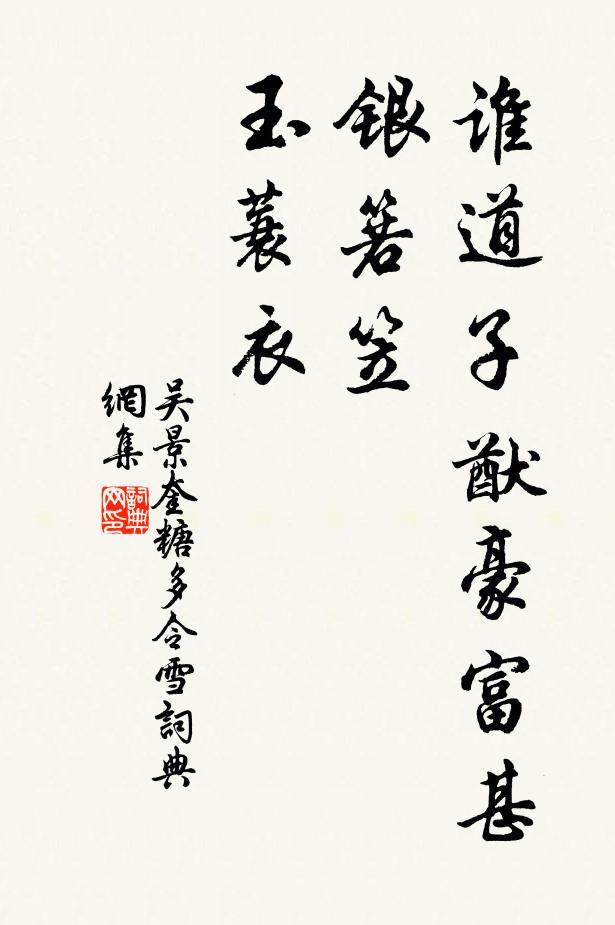 誰道子猷豪富甚
銀箬笠
玉蓑衣
吳景奎糖多令雪詞典
網集
詞典
网印